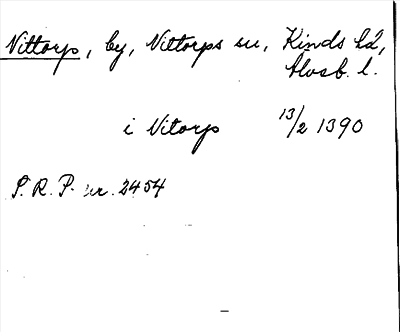 Vittorp, by, Vittorps sn, Kinds hd,
Älvsb. l.
i Vitorp 13/2 1390
P. R. P. nr. 2454